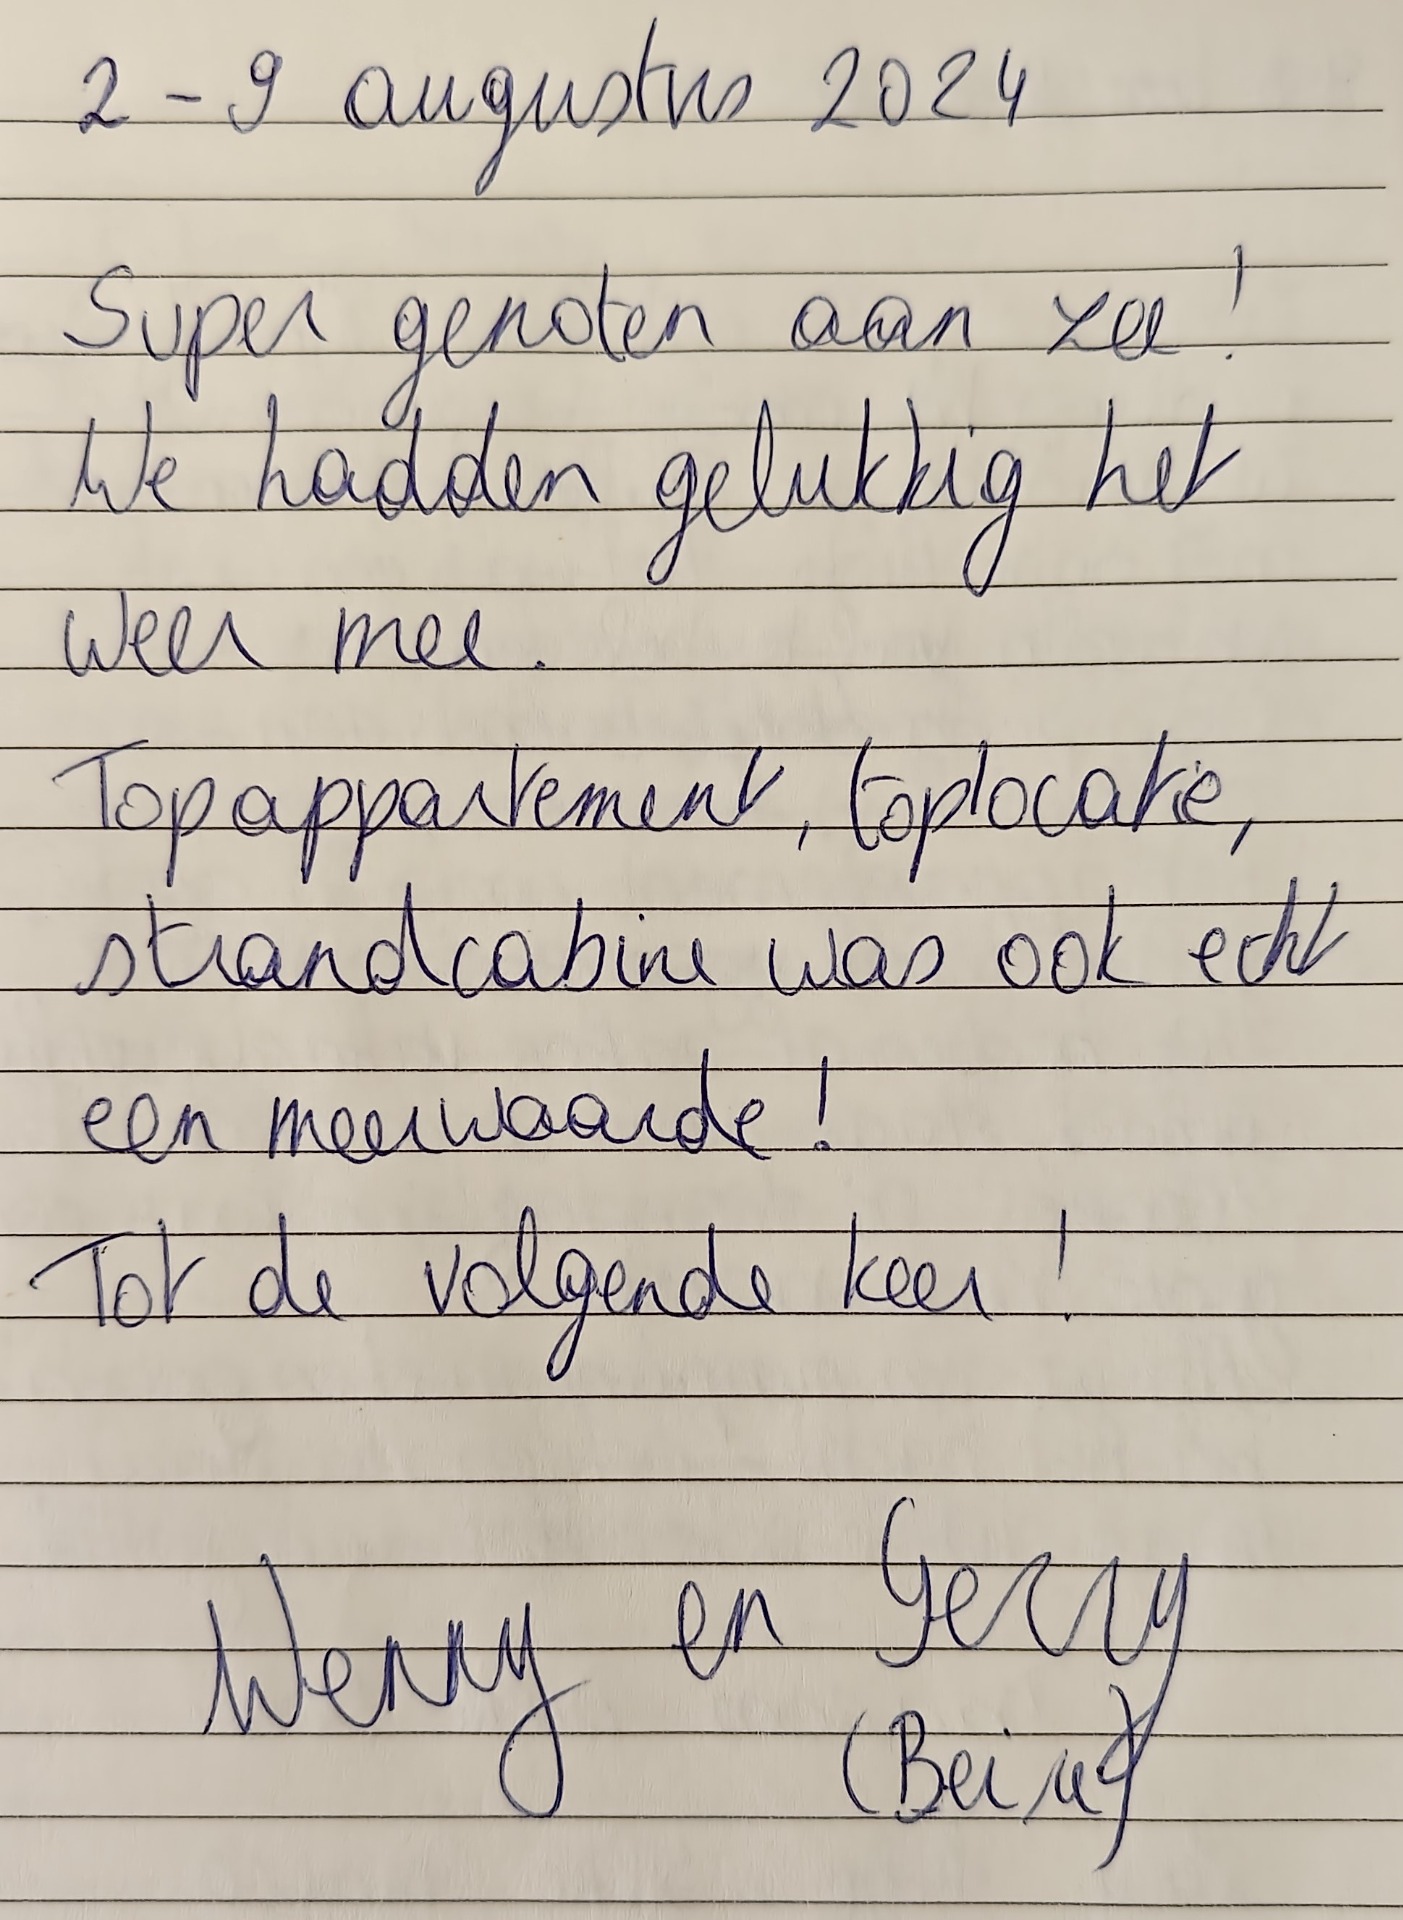 2 - 9 augustus 2024
Super genoten aan zee!
We hadden gelukkig het
weer mee.
Topappartement, toplocatie,
strandcabine was ook echt
een meerwaarde!
Tot de volgende keer!
Wenny en Gerry